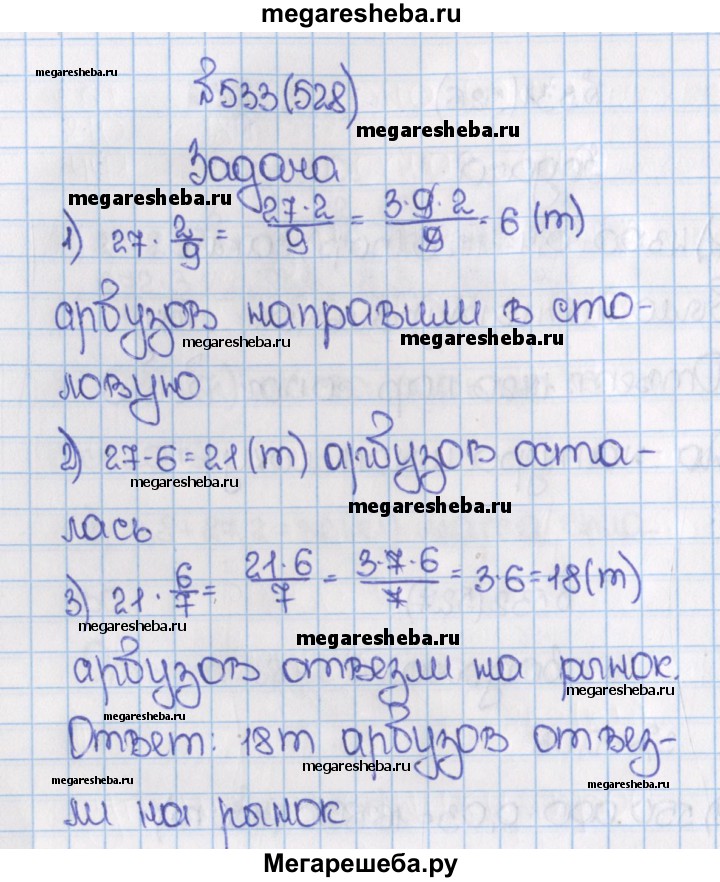 megaresheba.ru
megaresheba.ru
№533(528)
megaresheba.ru
Задача
megaresheba.ru
1) 27 · 2/9 = 27·2/9 = 3·9·2/9 = 6 (т)
арбузов направили в сто-
megaresheba.ru megaresheba.ru
ловую
2) 27-6=21(т) арбузов оста-
megaresheba.ru megaresheba.ru
лась
3) 21 · 6/7 = 21·6/7 = 3·7·6/7 = 3·6=18(т)
megaresheba.ru
megaresheba.ru
арбузов отвезли на рынок.
megaresheba.ru
megaresheba.ru
Ответ: 18т арбузов отвез-
megaresheba.ru
megaresheba.ru megaresheba.ru
ли на рынок
Мегарешеба.ру